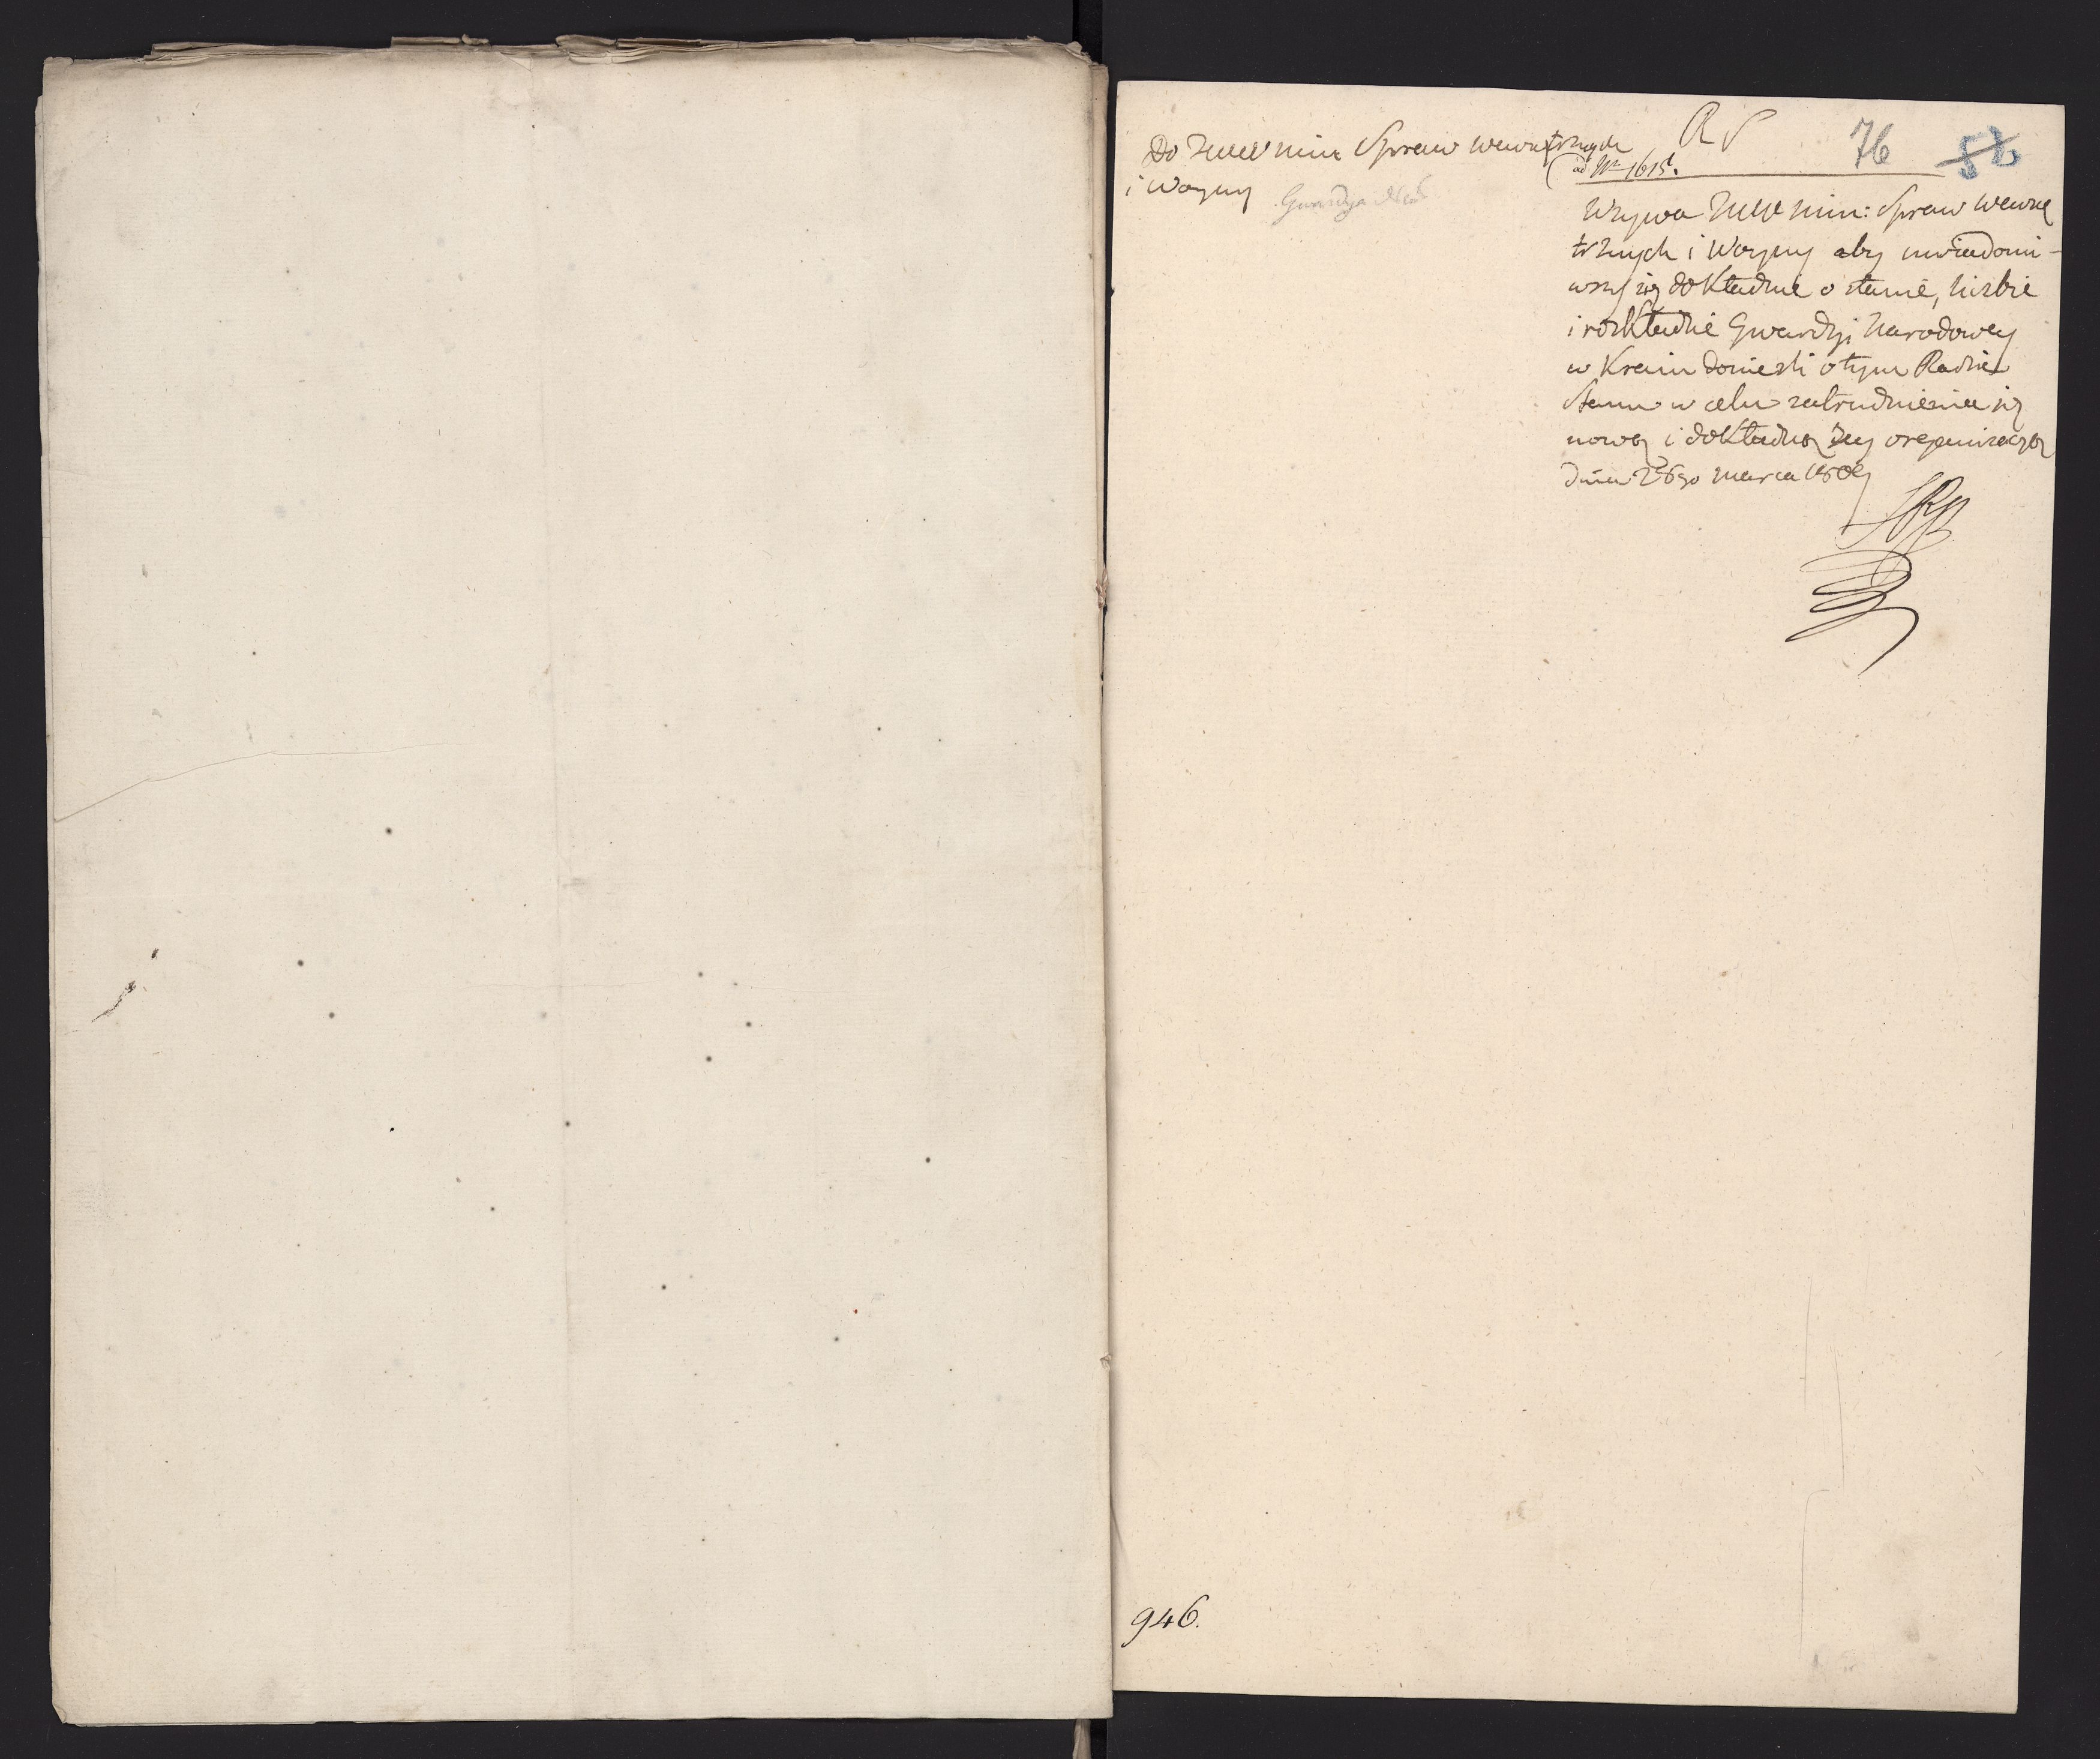 Do JWW Min Spraw wewnętrznych
i Woyny
Gwardya
RS
76
52
ad Nro 1615.
Wzywa JWW Min: Spraw Wewnę
trznych i Woyny aby uwiadomi-
wszy się dokładnie o stanie, liczbie
i rozkładzie Gwardyi Narodowey
w Kraiu donieśli o tym Radzie
Stanu w celu zatrudnienia się
nową i dokładną Jey organizacyą
Dnia 26go Marca 1809
946.